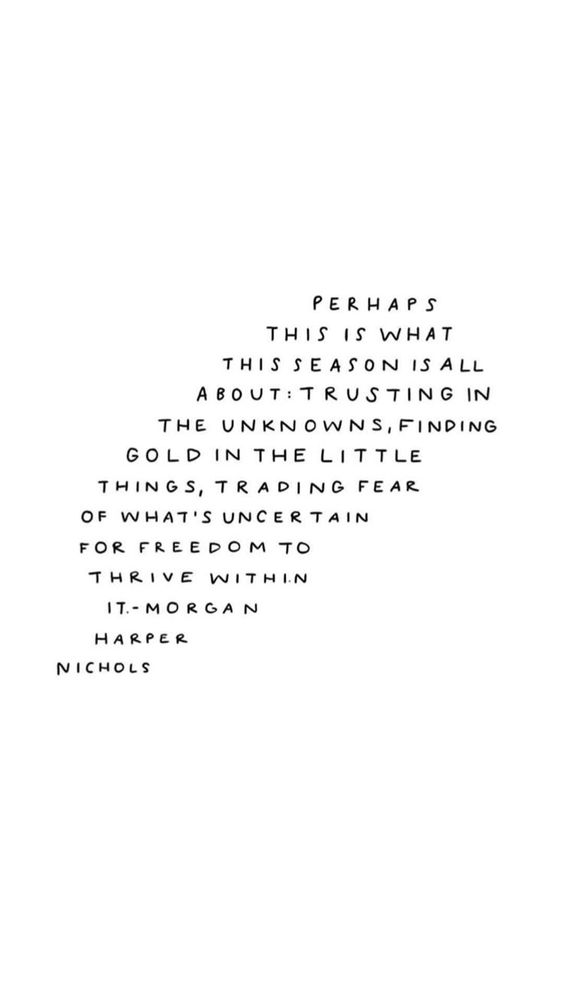 PERHAPS
THIS IS WHAT
THIS SEASON IS ALL
ABOUT: TRUSTING IN
THE UNKNOWNS, FINDING
GOLD IN THE LITTLE
THINGS, TRADING FEAR
OF WHAT'S UNCERTAIN
FOR FREEDOM TO
THRIVE WITHIN
IT.-MORGAN
HARPER
NICHOLS